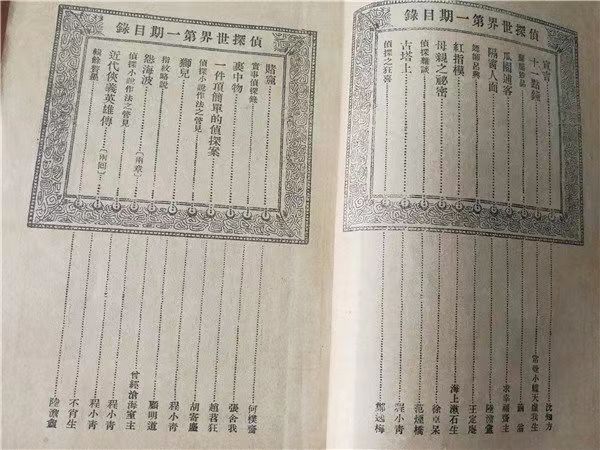 偵探世界第一期目錄
宣言 沈知方
十一點鐘 常覺小蝶天虛我生
求幸福齋主
瓜棚逋客
隔窗人面 陸澹盦
王定庵
紅指模 海上漱石生
母親之祕密 徐卓呆
偵探雜談 范煙橋
古塔上 程小青
偵探之狂喜 鄭逸梅
偵探世界第一期目錄
賭窟 何樸齋
實事偵探錄 張舍我
裹中物 趙苕狂
一件項簡單的偵探案 胡寄塵
偵探小說作法之管見 程小青
獅兒 顧明道
指紋略說 曾經滄海室主
怨海波〔兩章〕 程小青
偵探小說作法之管見 程小青
近代俠義英雄傳〔兩回〕 不肖生
輯餘贅墨 陸澹盦